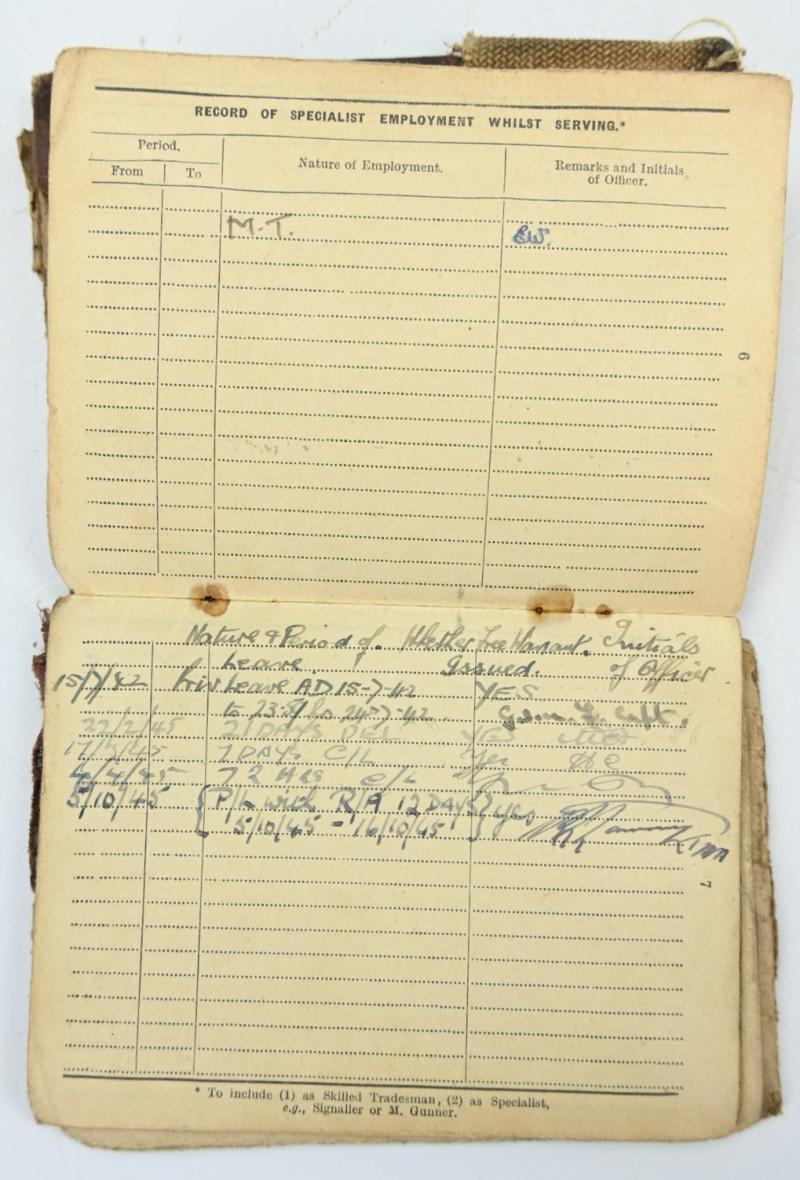 RECORD OF SPECIALIST EMPLOYMENT WHILST SERVING.*
Period.
From To Nature of Employment. Remarks and Initials of Officer.
M.T. EW.
6
Nature & Period of Whether Free Warrant. Initials
Leave. Issued. of Officer.
15/7/42 Priv Leave AD 15-7-42 YES
to 23.59 hrs 24-7-42. Capt.
22/2/45 21 DAYS YES
17/3/45 7 DAYS C/L Yes
4/4/45 72 HRS C/L
5/10/45 { P/L with R/A 12 DAYS } yes
5/10/45 - 16/10/45
7
* To include (1) as Skilled Tradesman, (2) as Specialist,
e.g., Signaller or M. Gunner.